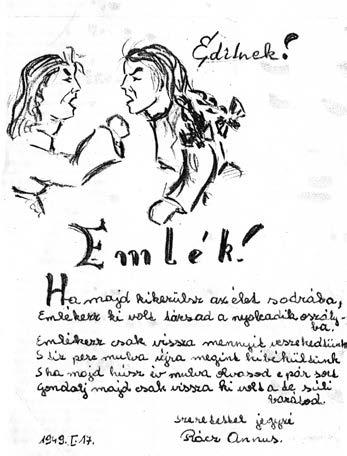 Editnek!
Emlék!
Ha majd kikerülsz az élet sodrába,
Emlékezz ki volt társad a nyolcadik osztály-
ba.
Emlékezz csak vissza mennyit veszekedtünk
S tíz perc mulva újra megint kibékültünk
S ha majd húsz év mulva olvasod e pár sort
Gondolj majd csak vissza ki volt a te süli
barátod.
szeretettel jegyzi
Rácz Annus.
1949. I. 17.